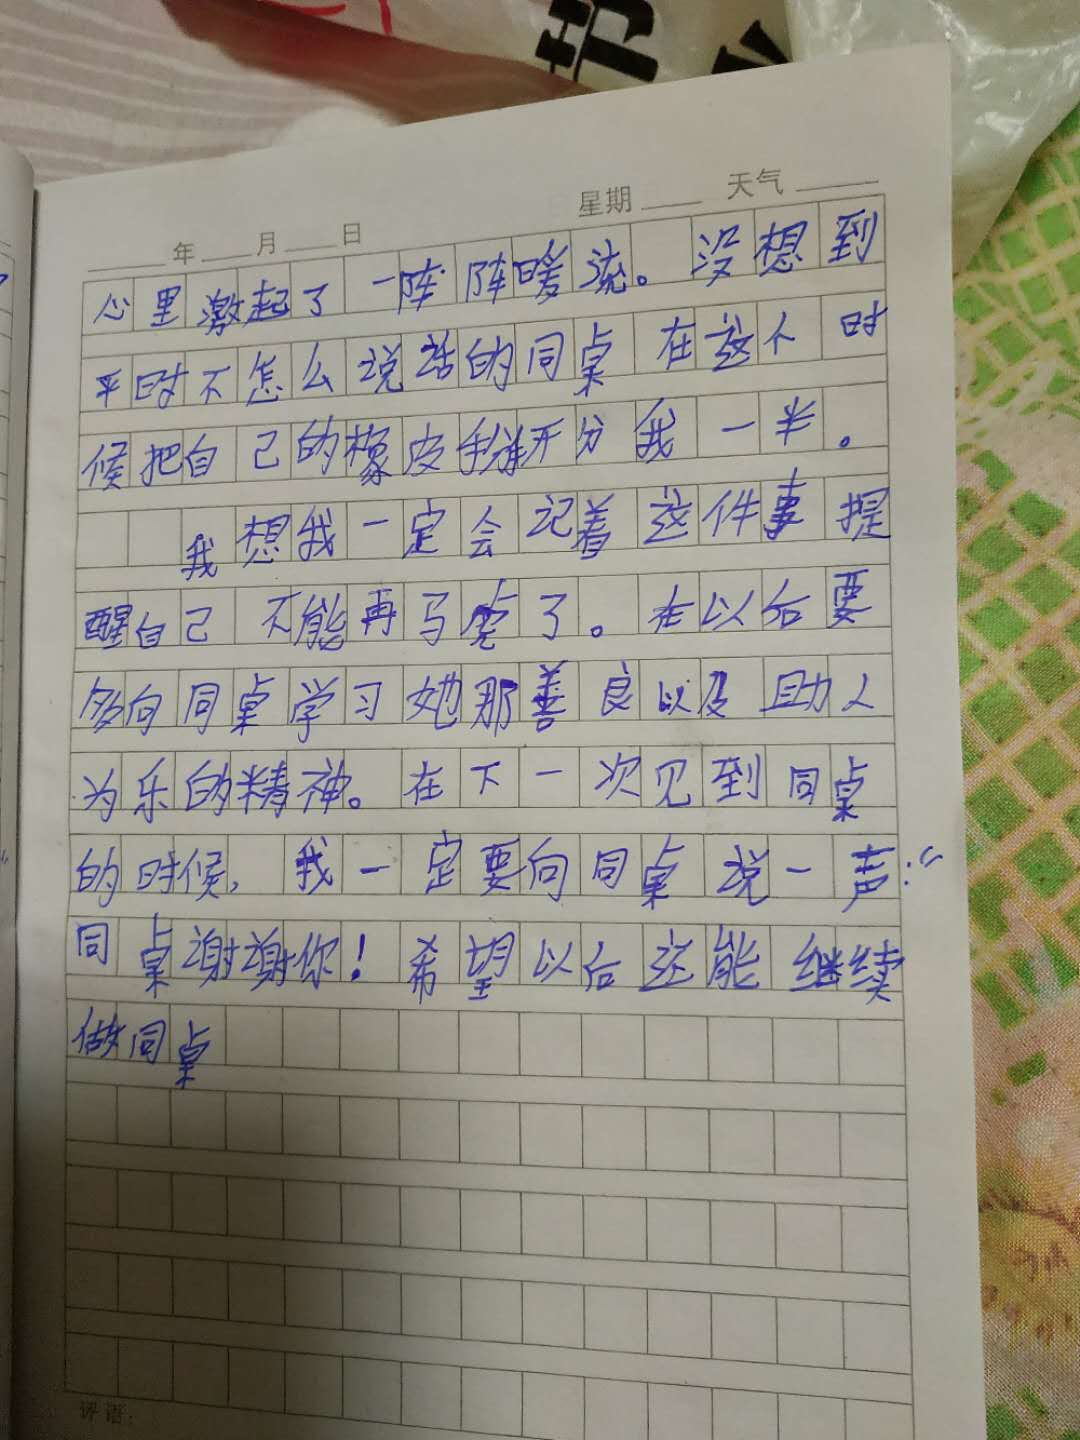 年 月 日 星期 天气
心里激起了一阵阵暖流。没想到
平时不怎么说话的同桌在这个时
候把自己的橡皮掰开分我一半。
我想我一定会记着这件事提
醒自己不能再马虎了。在以后要
多向同桌学习她那善良以及助人
为乐的精神。在下一次见到同桌
的时候,我一定要向同桌说一声:“
同桌谢谢你!希望以后还能继续
做同桌
评语: